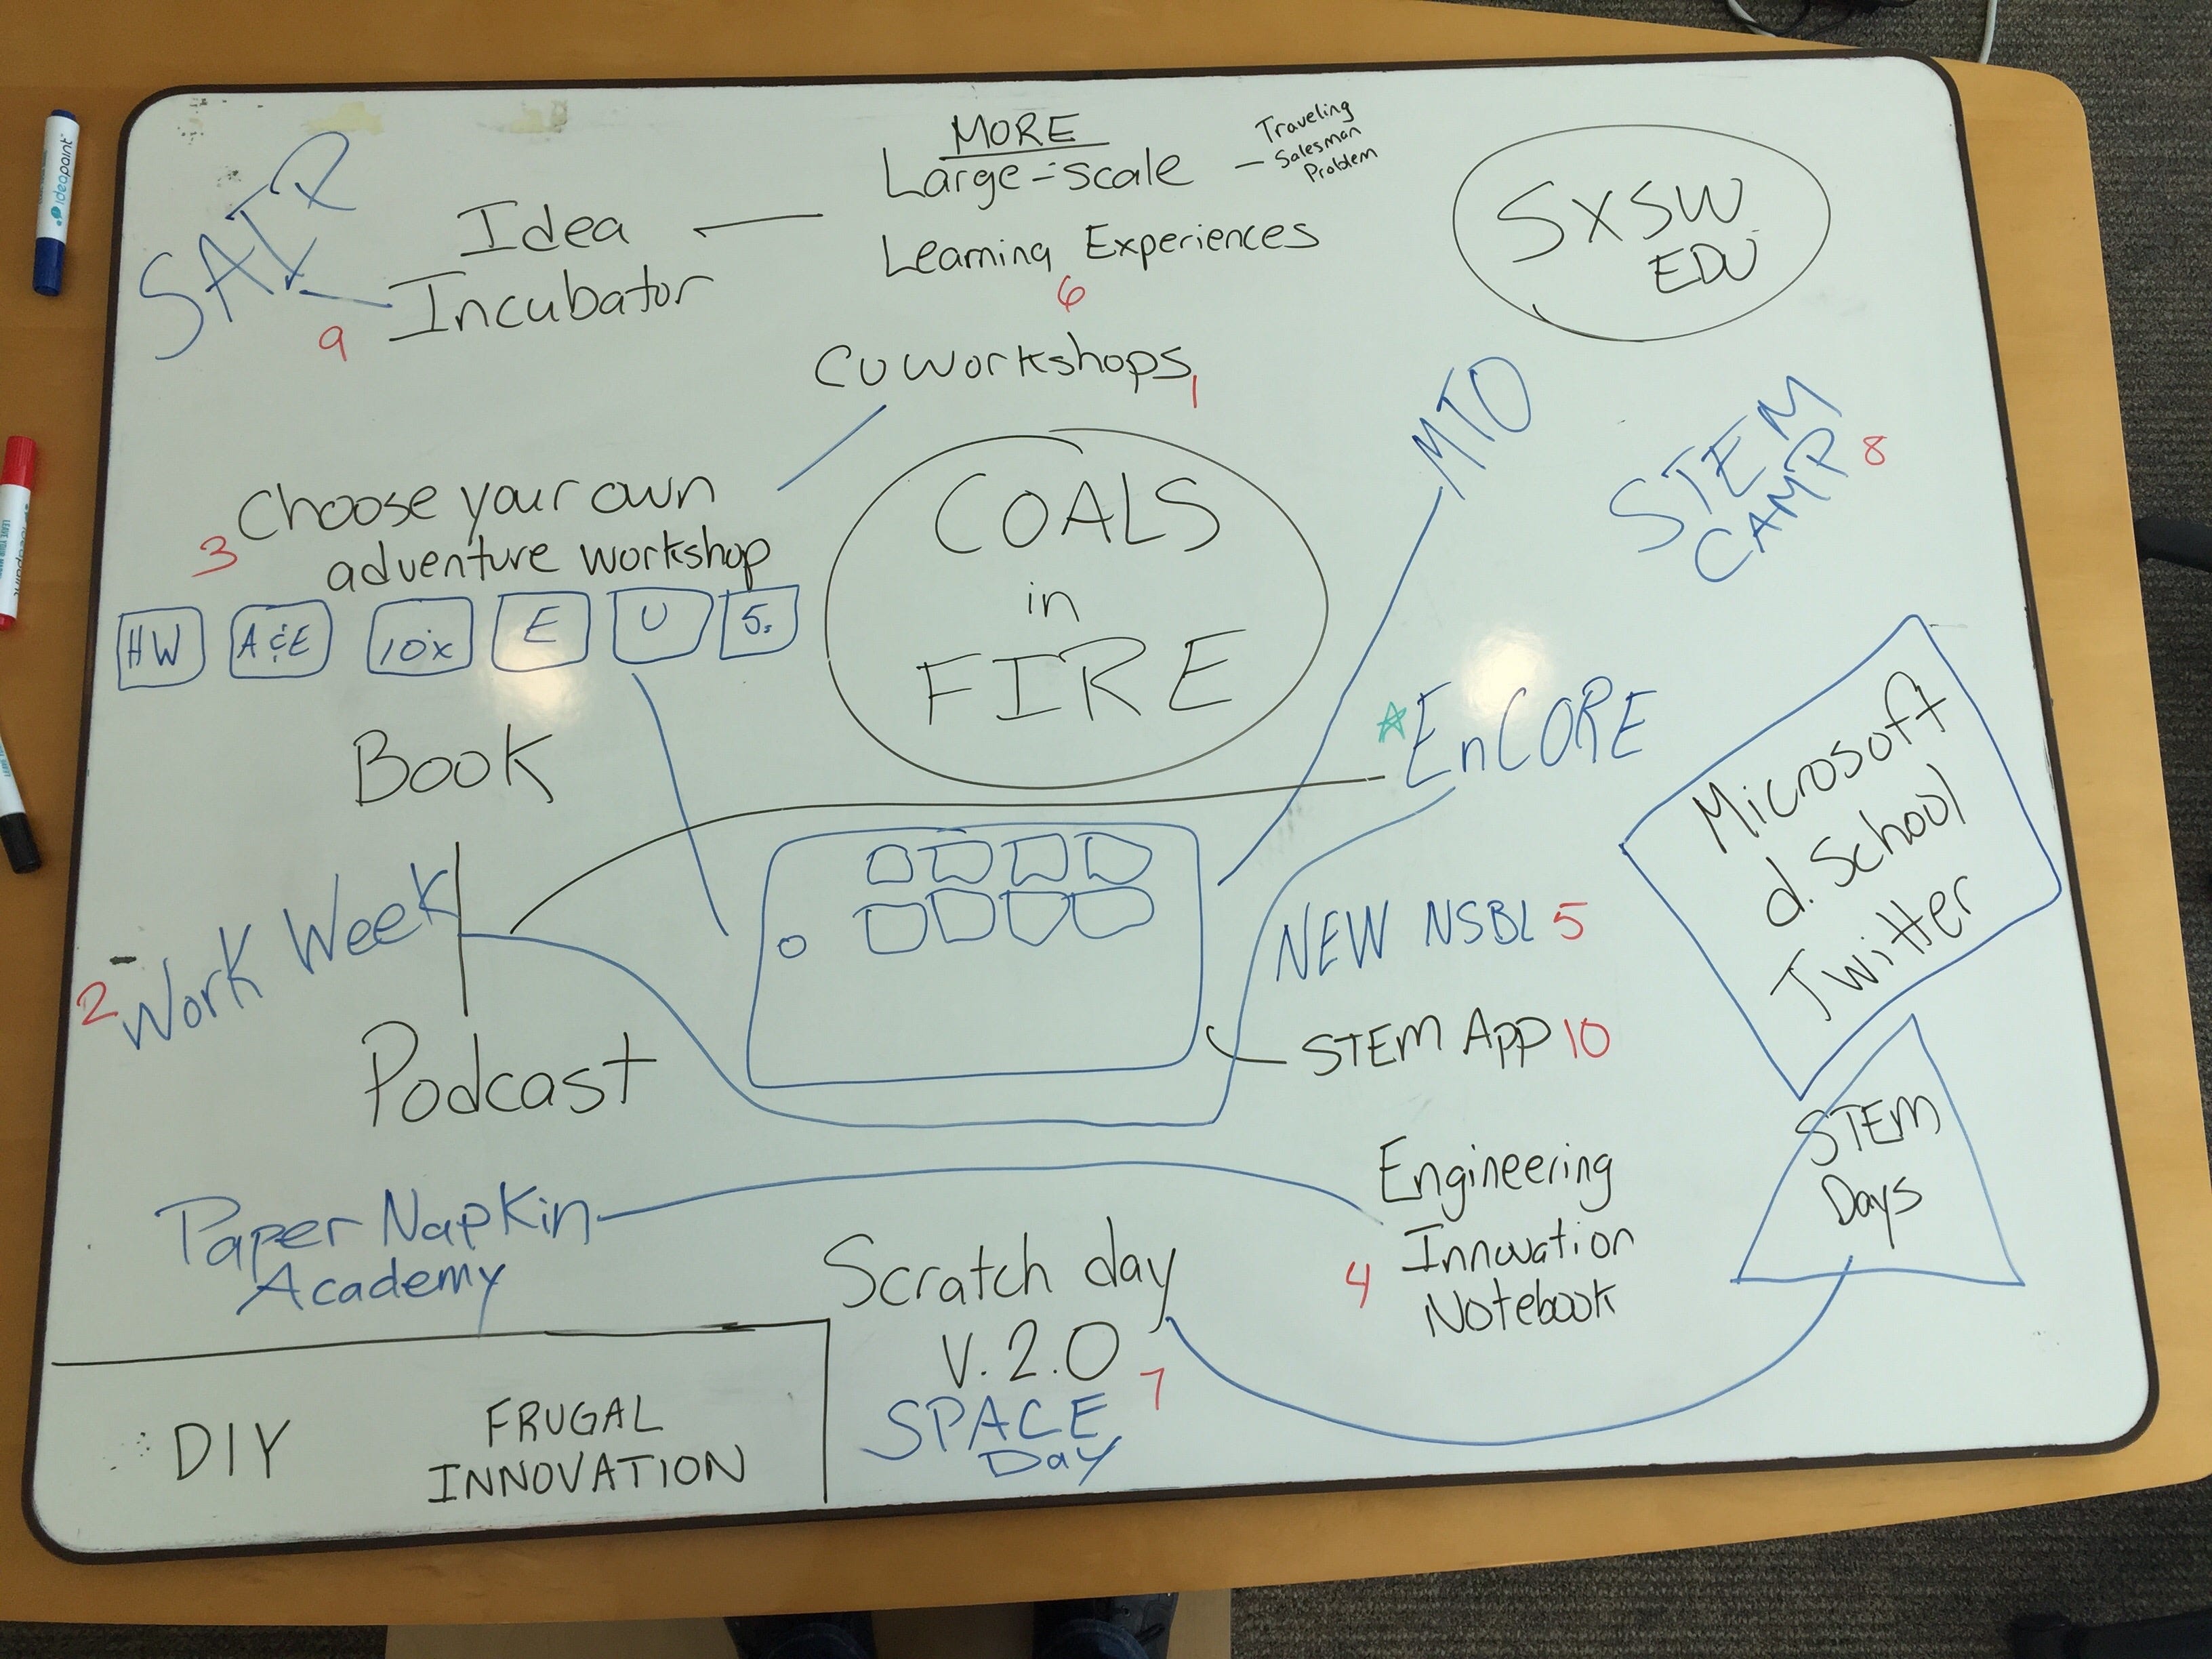 MORE
Large-scale
Learning Experiences
6
Traveling
Salesman
Problem
SXSW
EDU
Idea
Incubator
9
CU Workshops
1
MTO
STEM
CAMP 8
3 Choose your own
adventure workshop
HW A&E 10x E U
COALS
in
FIRE
Book
EnCORE
Microsoft
d. School
Twitter
2 Work Week
NEW NSBL 5
STEM App 10
Podcast
Engineering
Innovation
Notebook
4
STEM
Days
Paper Napkin
Academy
Scratch day
V. 2.0
7
SPACE
Day
DIY
FRUGAL
INNOVATION
ideapaint